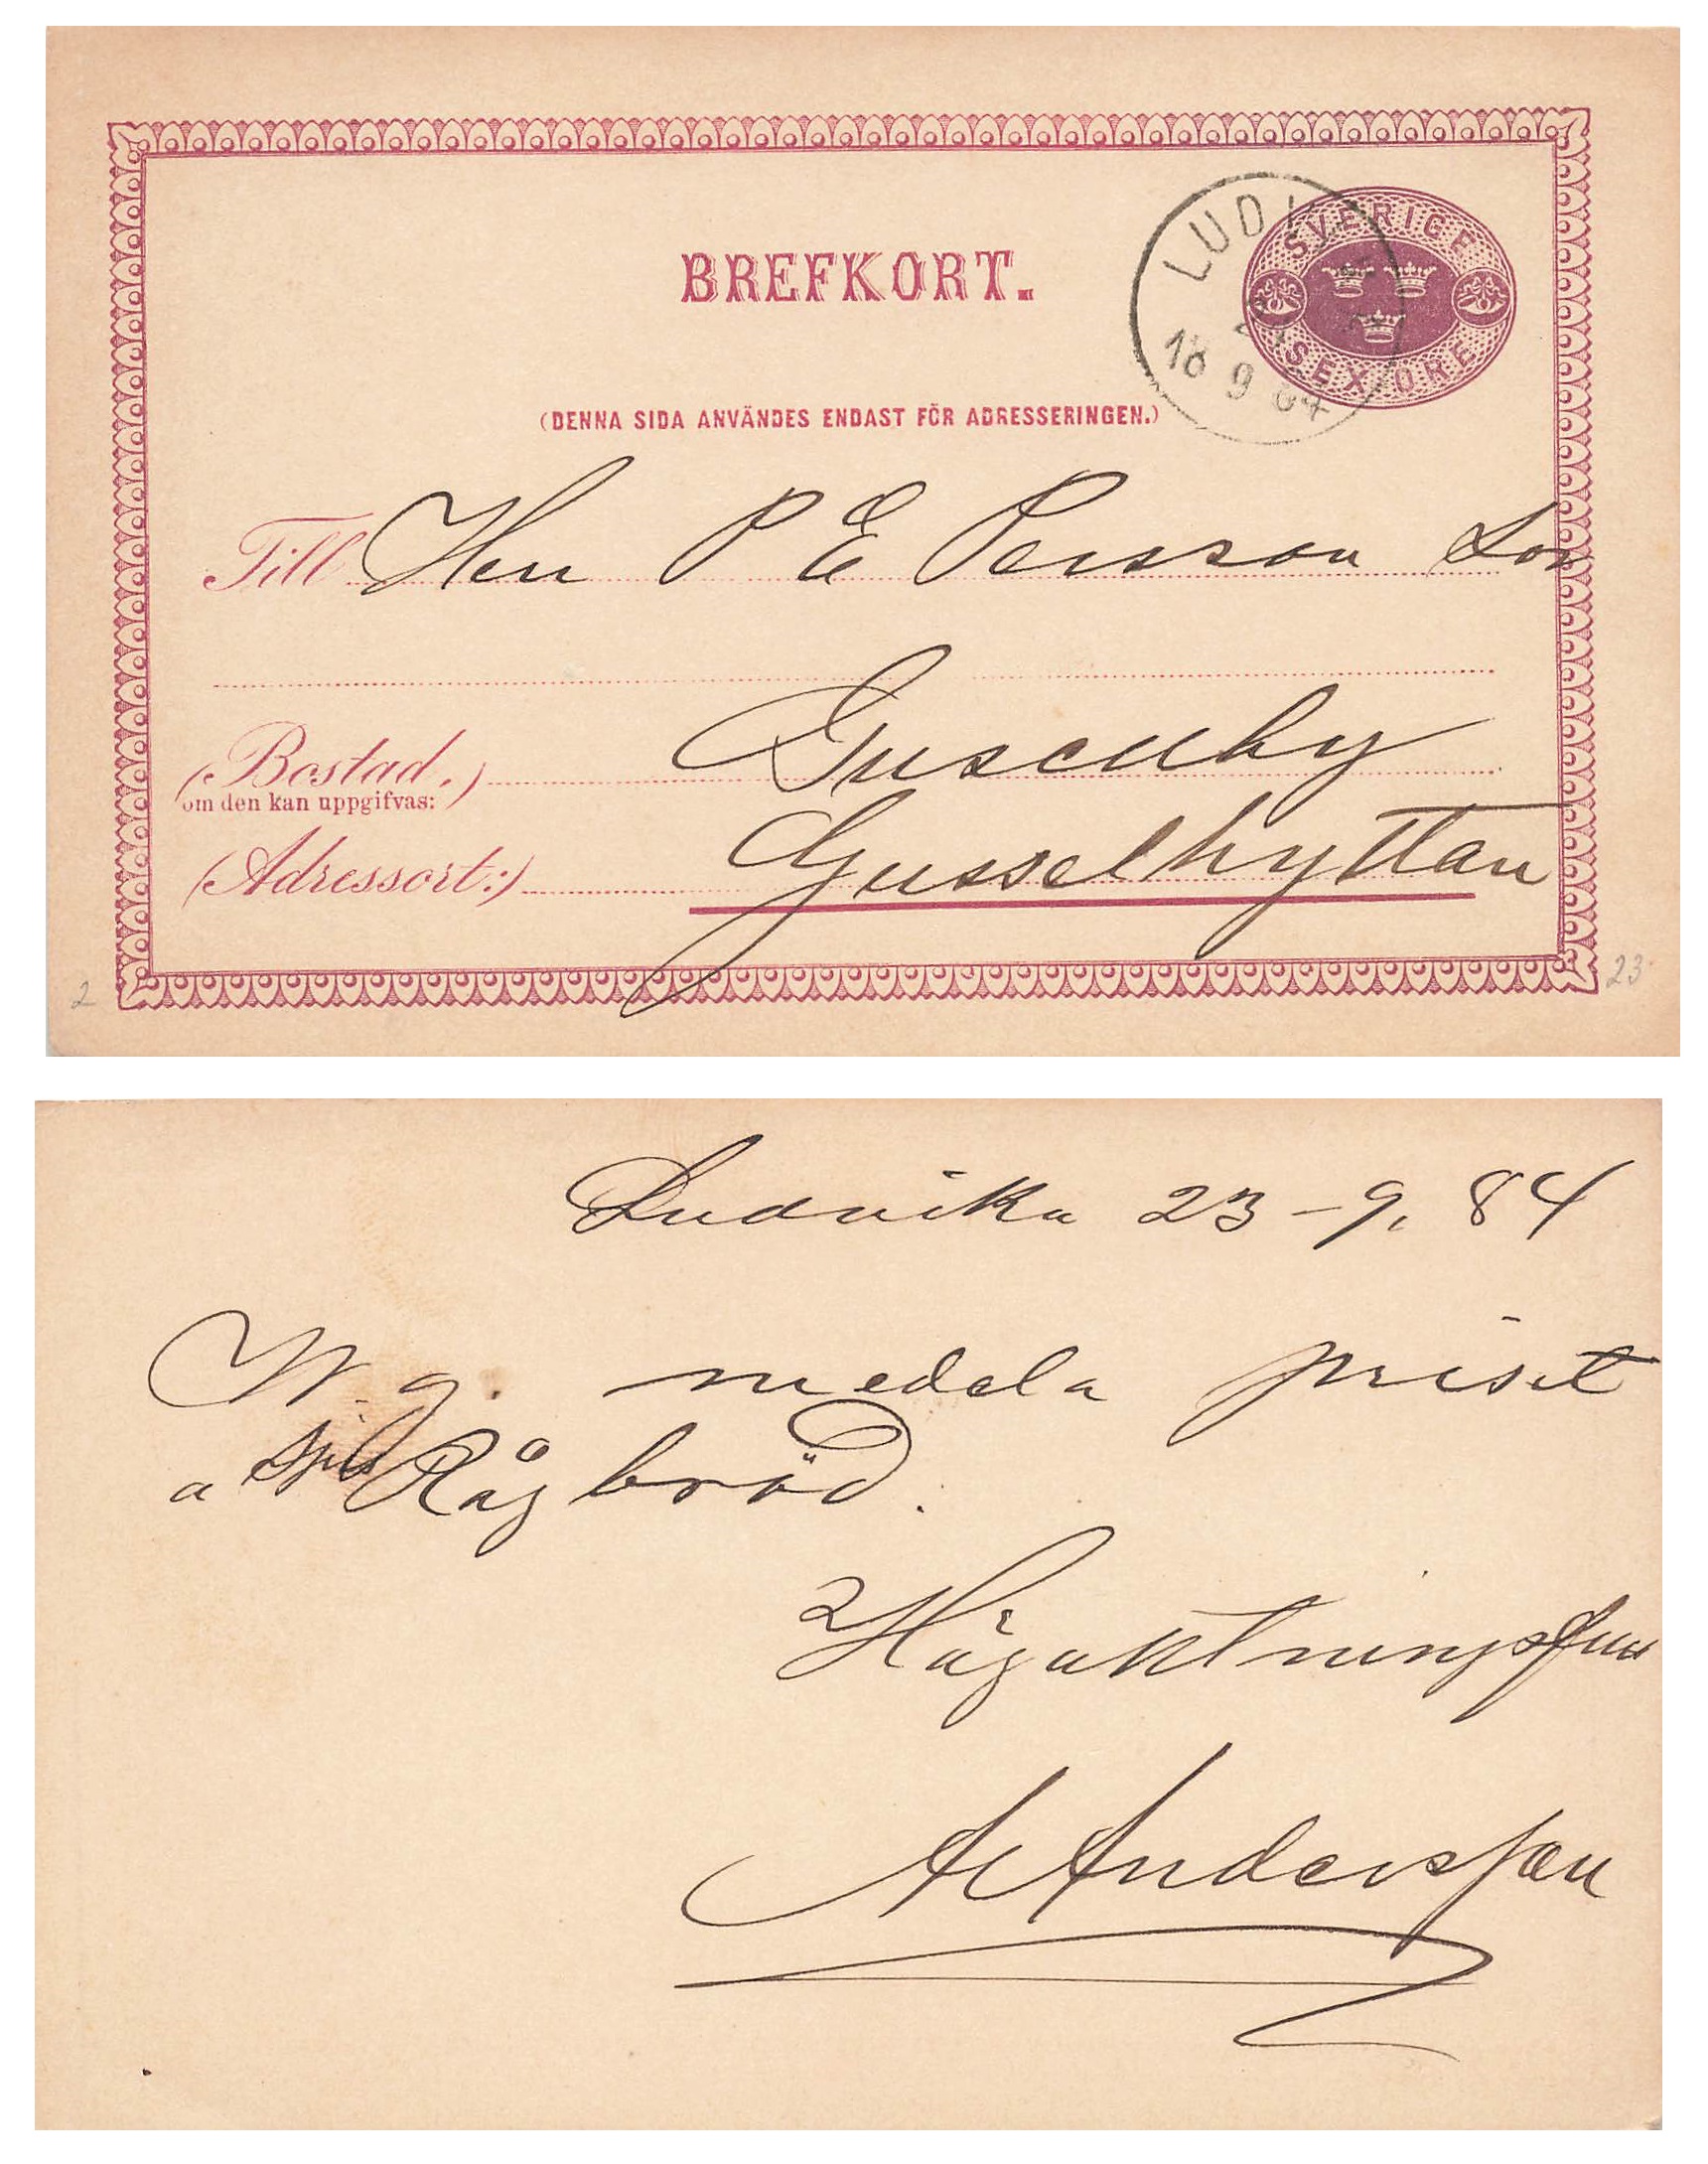 BREFKORT.
SVERIGE
SEX ÖRE
LUDV
23
18 9 84
(DENNA SIDA ANVÄNDES ENDAST FÖR ADRESSERINGEN.)
Till Herr P E Persson Son
(Bostad,)
om den kan uppgifvas:
(Adressort:) Gusselhyttan
2
23
Ludvika 23-9. 84
W. g. medela priset
a Rågbröd.
Högaktningsfull
A Andersson